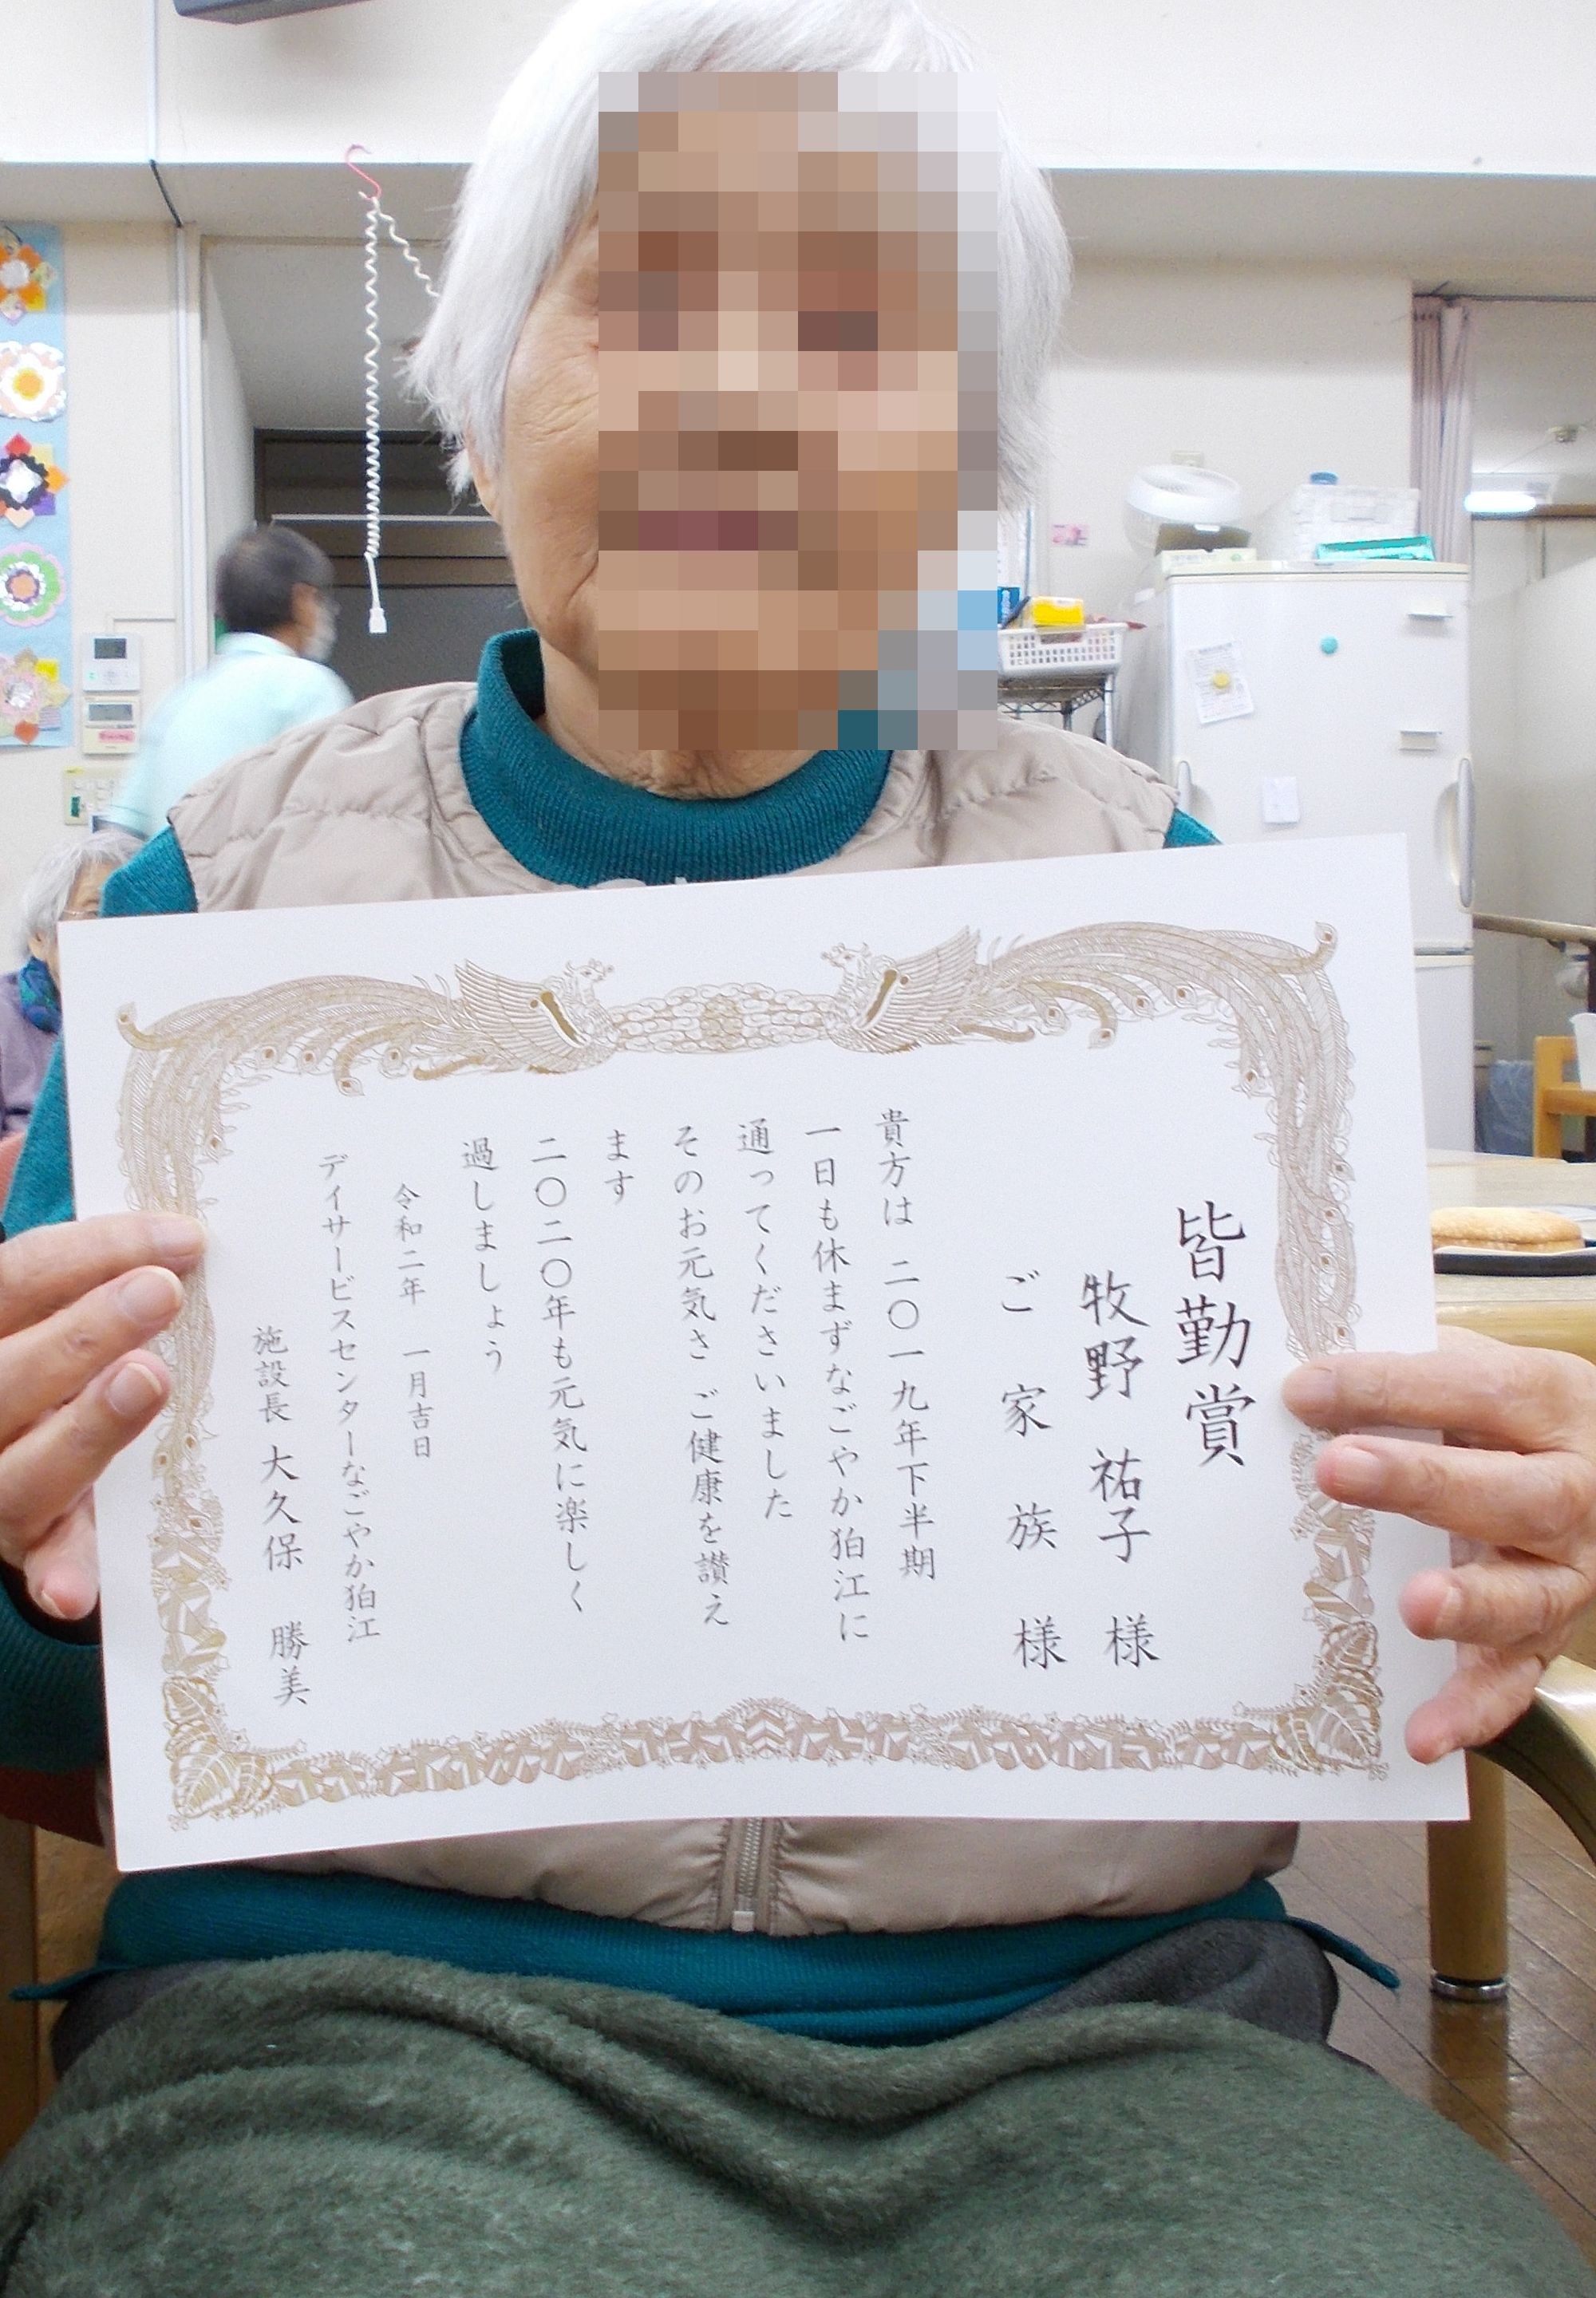 皆勤賞
牧野 祐子 様
ご家族様
貴方は 二〇一九年下半期
一日も休まずなごやか狛江に
通ってくださいました
そのお元気さ ご健康を讃え
ます
二〇二〇年も元気に楽しく
過しましょう
令和二年 一月吉日
デイサービスセンターなごやか狛江
施設長 大久保 勝美